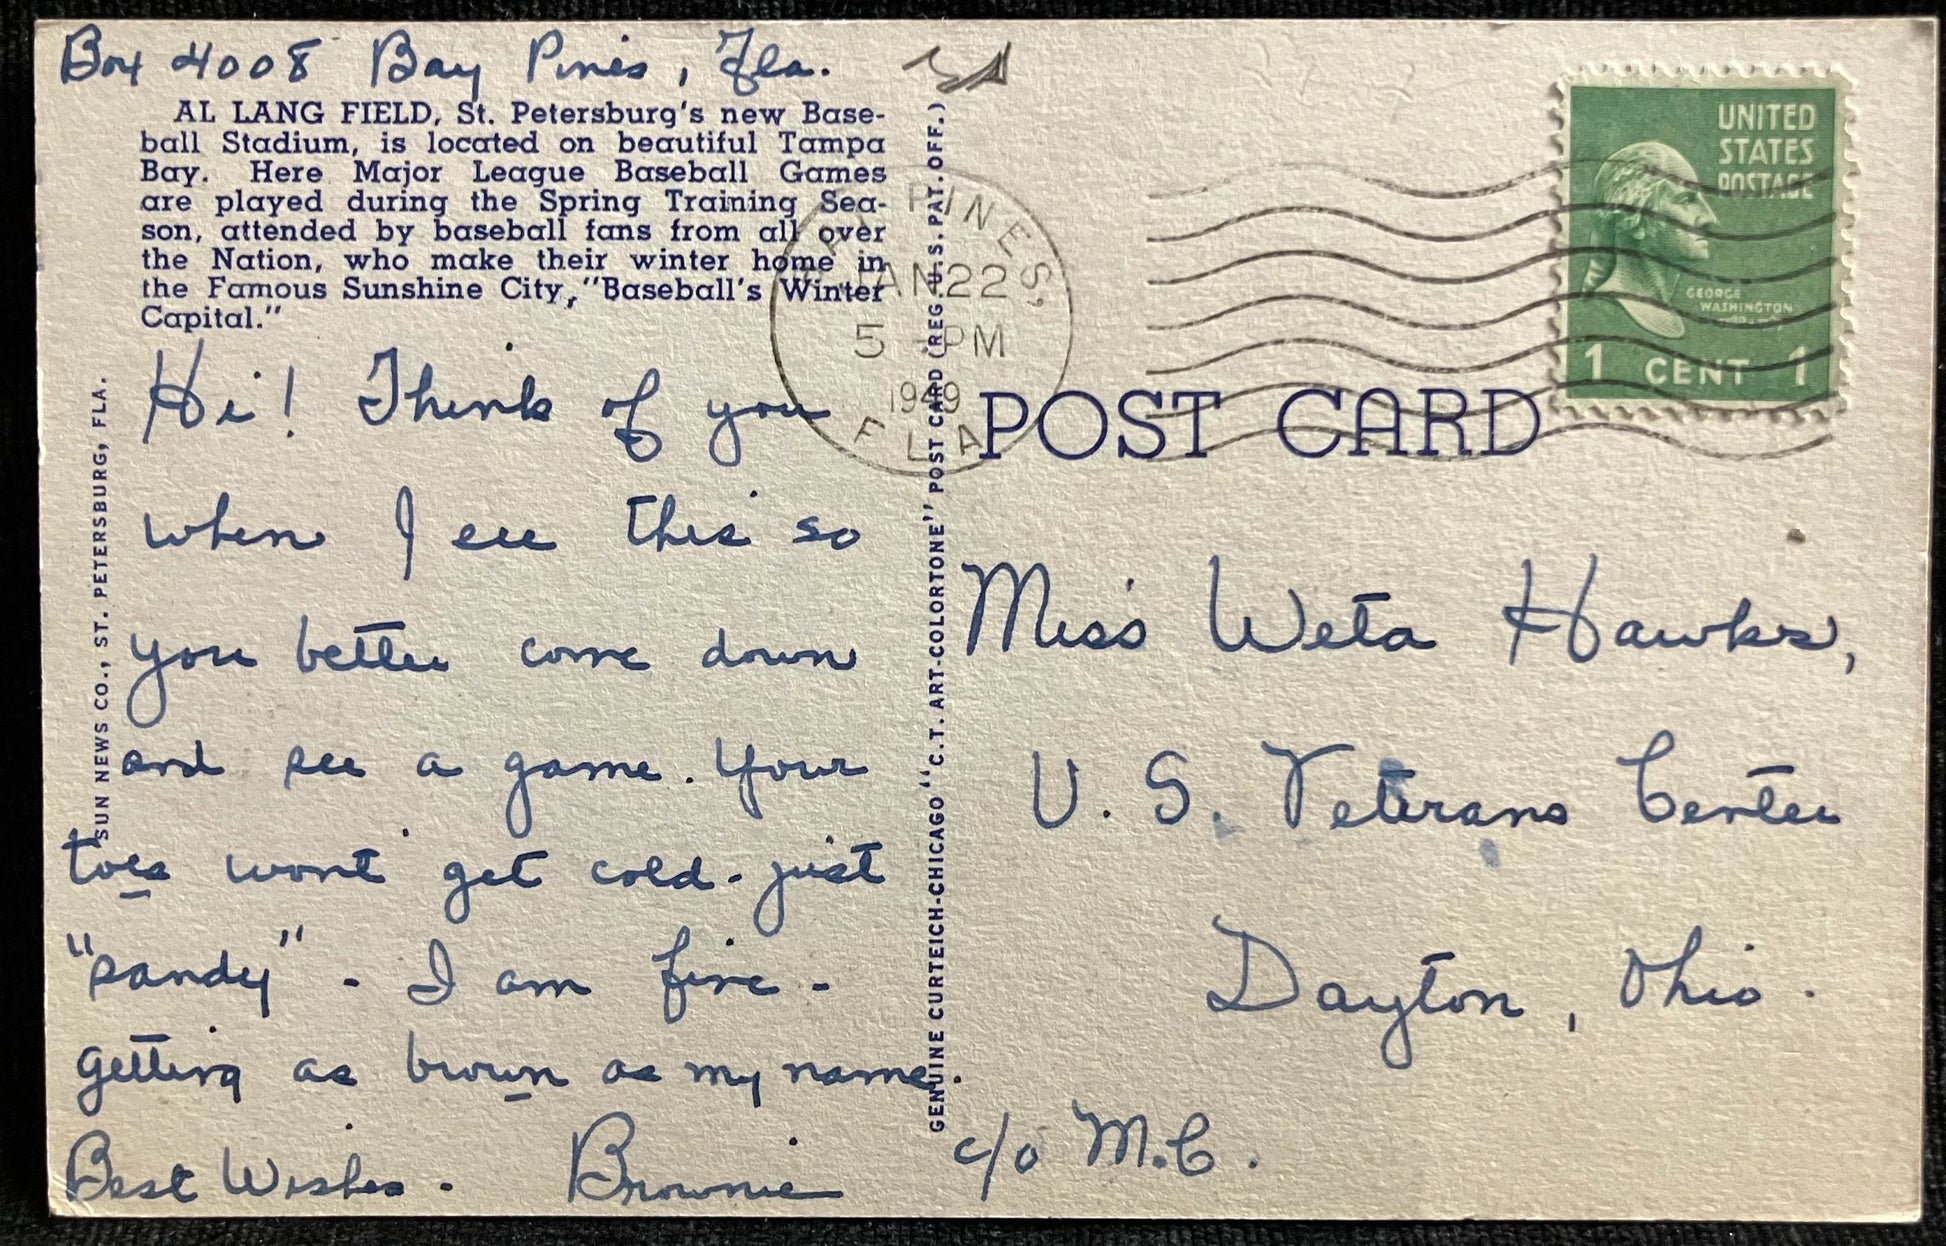 Box 4008 Bay Pines, Fla.
AL LANG FIELD, St. Petersburg's new Base-
ball Stadium, is located on beautiful Tampa
Bay. Here Major League Baseball Games
are played during the Spring Training Sea-
son, attended by baseball fans from all over
the Nation, who make their winter home in
the Famous Sunshine City, "Baseball's Winter
Capital."
Hi! Think of you
when I see this so
you better come down
and see a game. Your
toes won't get cold - just
"sandy" - I am fine -
getting as brown as my name.
Best Wishes. Brownie
SUN NEWS CO., ST. PETERSBURG, FLA.
GENUINE CURTEICH-CHICAGO "C.T. ART-COLORTONE" POST CARD (REG. U.S. PAT. OFF.)
PINES,
JAN 22
5 - PM
1949
FLA
UNITED
STATES
POSTAGE
GEORGE
WASHINGTON
1 CENT 1
POST CARD
Miss Weta Hawks,
U. S. Veterans Center
Dayton, Ohio.
c/o M.C.